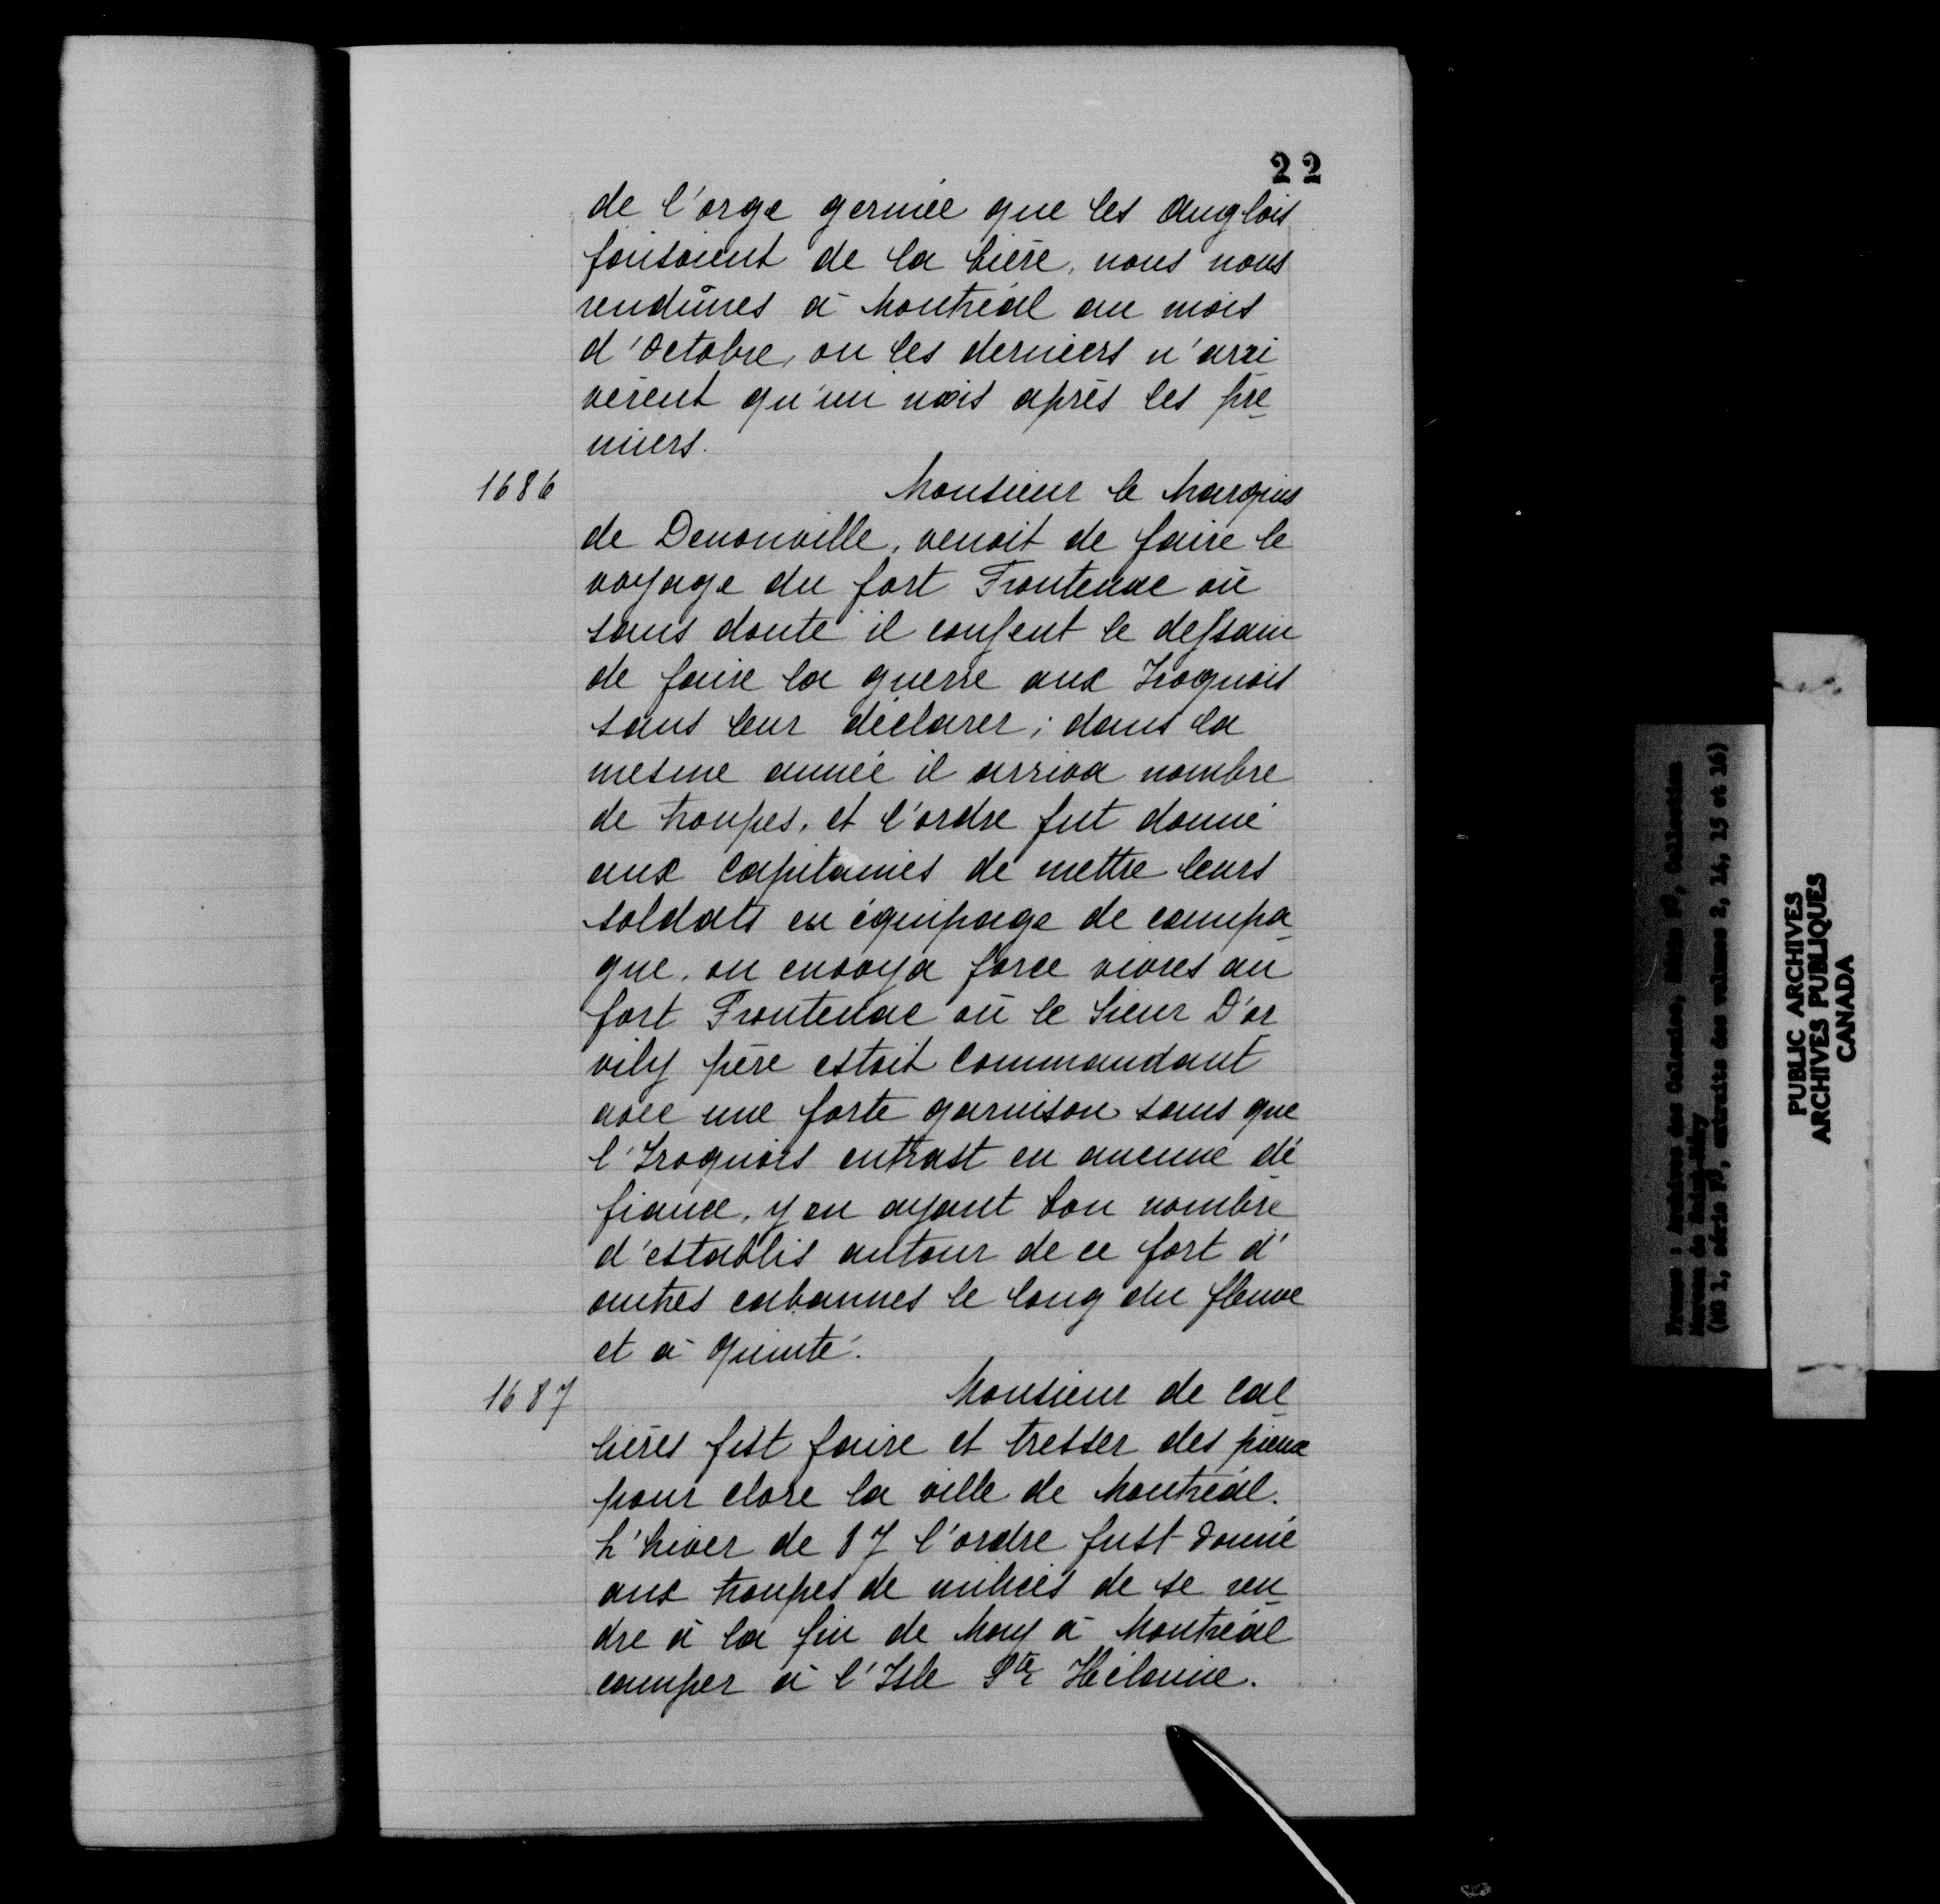 22
de l'orge germée que les Anglois
faisoient de la bière, nous nous
rendimes à Montréal au mois
d'Octobre, ou les derniers n'arri
vèrent qu'un mois après les pre
miers.
1686
Monsieur le Marquis
de Denonville, venoit de faire le
voyage du fort Frontenac où
sans doute il conçeut le dessain
de faire la guerre aux Iroquois
sans leur déclarer; dans la
mesme année il arriva nombre
de troupes, et l'ordre fut donné
aux Capitaines de mettre leurs
soldats en équipage de campa
gne, on envoya force vivres au
fort Frontenac où le Sieur D'or
vily père estoit Commandant
avec une forte garnison sans que
l'Iroquois entrast en aucune dé
fiance, y en ayant bon nombre
d'establis autour de ce fort d'
autres cabannes le long du fleuve
et à Quinté.
1687
Monsieur de Cal
lières fist faire et tresser des pieux
pour clore la ville de Montréal.
L'hiver de 87 l'ordre fust donné
aux troupes de milices de se ren
dre à la fin de May à Montréal
camper à l'Isle Ste Hélaine.
France : Archives des Colonies, Série F3, Collection
Moreau de Saint-Méry
(MG 1, série F3, extraits des volumes 2, 24, 25 et 26)
PUBLIC ARCHIVES
ARCHIVES PUBLIQUES
CANADA